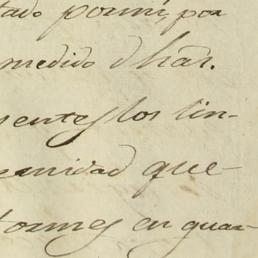 tado pormi, por
medido d has.
mentes los lin-
enidad que-
formes en quan-